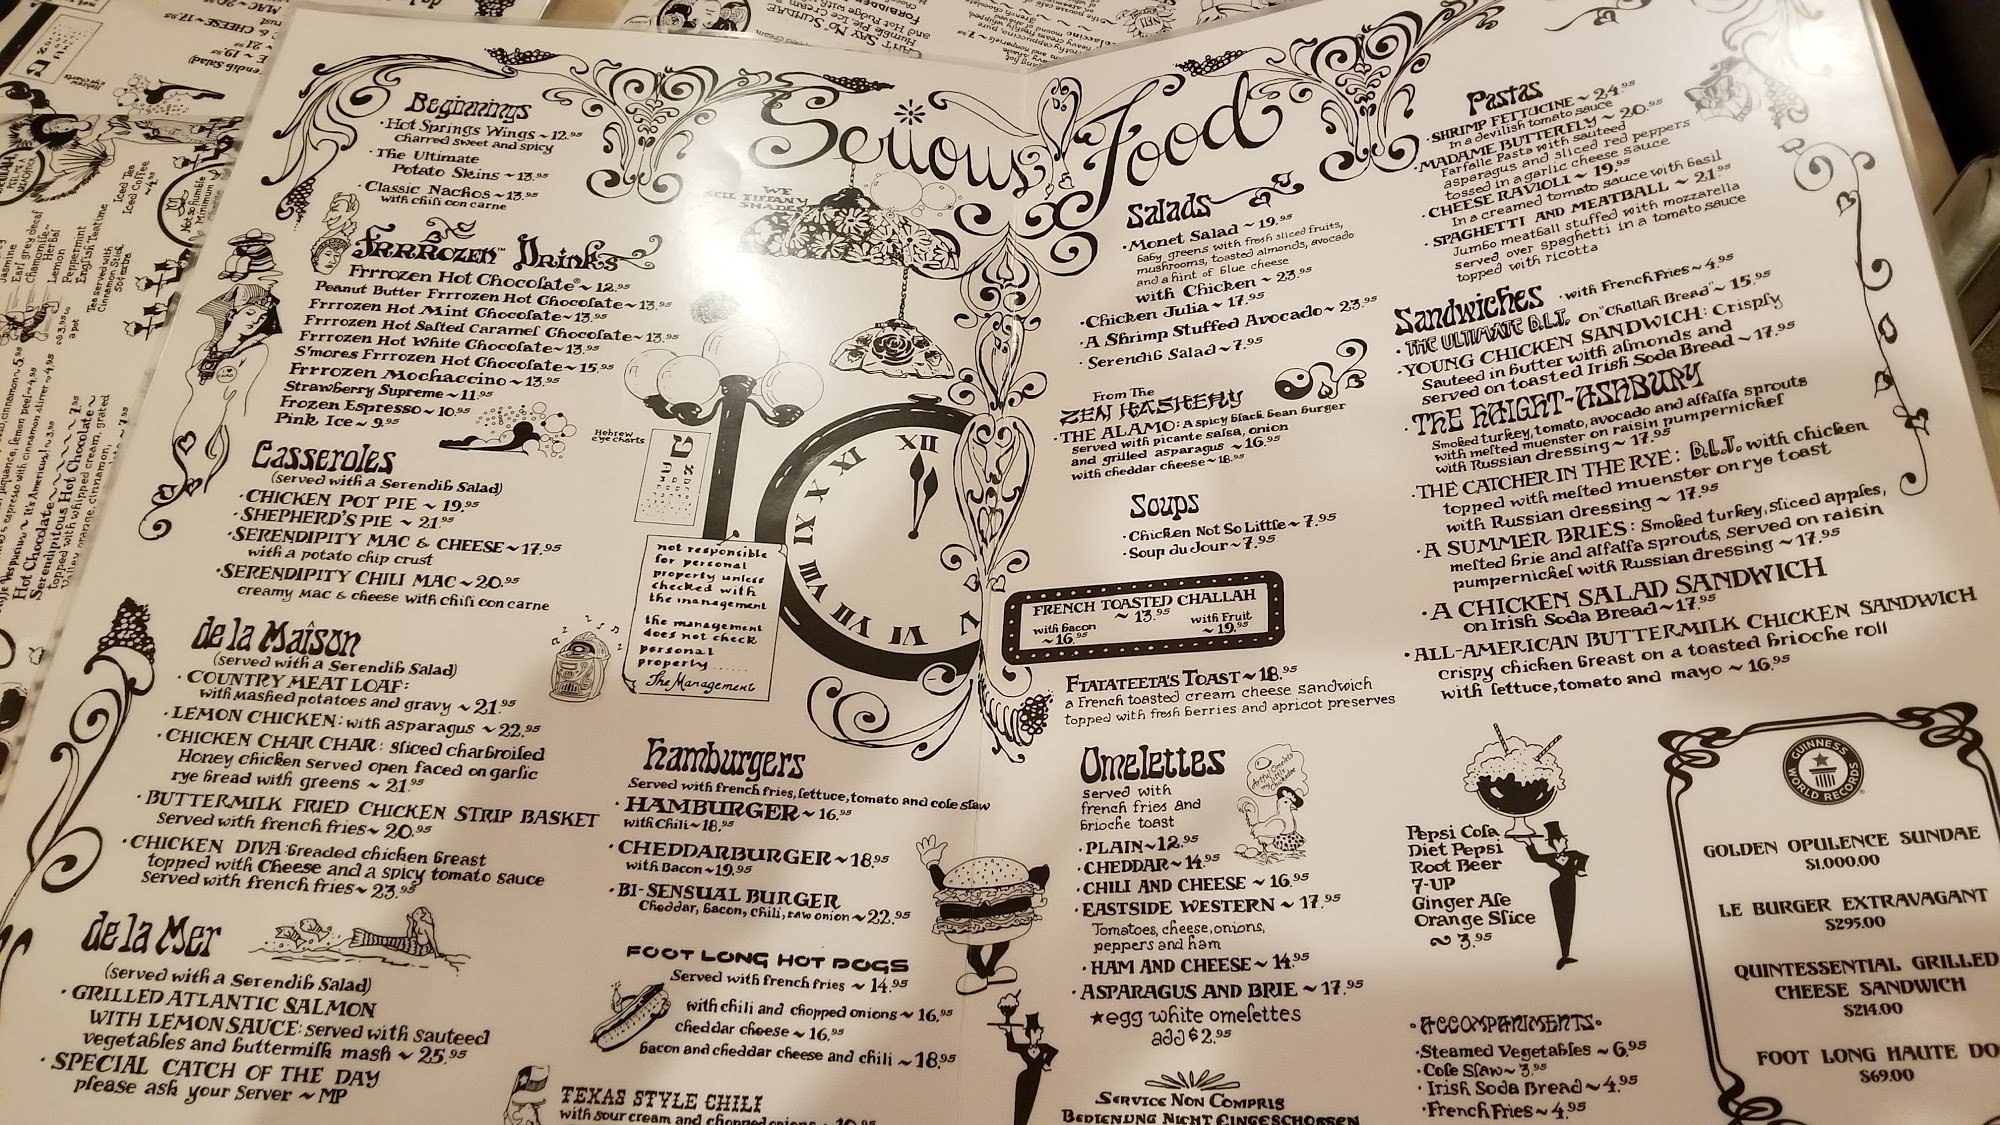 Serious Food
Beginnings
· Hot Springs Wings ~ 12.95
charred sweet and spicy
· The Ultimate
Potato Skins ~ 13.95
· Classic Nachos ~ 13.95
with chili con carne
Frrrozen™ Drinks
Frrrozen Hot Chocolate® ~ 12.95
Peanut Butter Frrrozen Hot Chocolate ~ 13.95
Frrrozen Hot Mint Chocolate ~ 13.95
Frrrozen Hot Salted Caramel Chocolate ~ 13.95
Frrrozen Hot White Chocolate ~ 13.95
S'mores Frrrozen Hot Chocolate ~ 15.95
Frrrozen Mochaccino ~ 13.95
Strawberry Supreme ~ 11.95
Frozen Espresso ~ 10.95
Pink Ice ~ 9.95
Casseroles
(served with a Serendib Salad)
· CHICKEN POT PIE ~ 19.95
· SHEPHERD'S PIE ~ 21.95
· SERENDIPITY MAC & CHEESE ~ 17.95
with a potato chip crust
· SERENDIPITY CHILI MAC ~ 20.95
creamy mac & cheese with chili con carne
de la Maison
(served with a Serendib Salad)
· COUNTRY MEAT LOAF:
with mashed potatoes and gravy ~ 21.95
· LEMON CHICKEN: with asparagus ~ 22.95
· CHICKEN CHAR CHAR: sliced charbroiled
Honey chicken served open faced on garlic
rye bread with greens ~ 21.95
· BUTTERMILK FRIED CHICKEN STRIP BASKET
Served with french fries ~ 20.95
· CHICKEN DIVA breaded chicken breast
topped with Cheese and a spicy tomato sauce
Served with french fries ~ 23.95
de la Mer
(served with a Serendib Salad)
· GRILLED ATLANTIC SALMON
WITH LEMON SAUCE: served with sauteed
vegetables and buttermilk mash ~ 25.95
· SPECIAL CATCH OF THE DAY
please ask your Server ~ MP
WE
SELL TIFFANY
SHADES
Hebrew
eye charts
XII
XI
X
IX
VIII
VII
VI
V
not responsible
for personal
property unless
checked with
the management
the management
does not check
personal
property ......
The Management
Hamburgers
Served with french fries, lettuce, tomato and cole slaw
· HAMBURGER ~ 16.95
with Chili ~ 18.95
· CHEDDARBURGER ~ 18.95
with Bacon ~ 19.95
· BI-SENSUAL BURGER
Cheddar, bacon, chili, raw onion ~ 22.95
FOOT LONG HOT DOGS
Served with french fries ~ 14.95
with chili and chopped onions ~ 16.95
cheddar cheese ~ 16.95
bacon and cheddar cheese and chili ~ 18.95
TEXAS STYLE CHILI
with sour cream and chopped onions ~
Salads
· Monet Salad ~ 19.95
baby greens with fresh sliced fruits,
mushrooms, toasted almonds, avocado
and a hint of blue cheese
with Chicken ~ 23.95
· Chicken Julia ~ 17.95
· A Shrimp Stuffed Avocado ~ 23.95
· Serendib Salad ~ 7.95
From The
ZEN HASHERY
· THE ALAMO: A spicy black bean burger
served with picante salsa, onion
and grilled asparagus ~ 16.95
with cheddar cheese ~ 18.95
Soups
· Chicken Not So Little ~ 7.95
· Soup du Jour ~ 7.95
FRENCH TOASTED CHALLAH
~ 13.95
with bacon
~ 16.95
with Fruit
~ 19.95
FTATATEETA'S TOAST ~ 18.95
a French toasted cream cheese sandwich
topped with fresh berries and apricot preserves
Omelettes
served with
french fries and
brioche toast
· PLAIN ~ 12.95
· CHEDDAR ~ 14.95
· CHILI AND CHEESE ~ 16.95
· EASTSIDE WESTERN ~ 17.95
Tomatoes, cheese, onions,
peppers and ham
· HAM AND CHEESE ~ 14.95
· ASPARAGUS AND BRIE ~ 17.95
★egg white omelettes
add $2.95
SERVICE NON COMPRIS
BEDIENUNG NICHT EINGESCHOSSEN
Pastas
· SHRIMP FETTUCINE ~ 24.95
In a devilish tomato sauce
· MADAME BUTTERFLY ~ 20.95
Farfalle Pasta with sauteed
asparagus and sliced red peppers
tossed in a garlic cheese sauce
· CHEESE RAVIOLI ~ 19.95
In a creamed tomato sauce with basil
· SPAGHETTI AND MEATBALL ~ 21.95
Jumbo meatball stuffed with mozzarella
served over spaghetti in a tomato sauce
topped with ricotta
Sandwiches · with French Fries ~ 4.95
· THE ULTIMATE B.L.T. on "Challah Bread" ~ 15.95
· YOUNG CHICKEN SANDWICH: Crispy
Sauteed in butter with almonds and
served on toasted Irish Soda Bread ~ 17.95
· THE HAIGHT-ASHBURY
Smoked turkey, tomato, avocado and alfalfa sprouts
with melted muenster on raisin pumpernickel
with Russian dressing ~ 17.95
· THE CATCHER IN THE RYE: B.L.T. with chicken
topped with melted muenster on rye toast
with Russian dressing ~ 17.95
· A SUMMER BRIES: Smoked turkey, sliced apples,
melted brie and alfalfa sprouts, served on raisin
pumpernickel with Russian dressing ~ 17.95
· A CHICKEN SALAD SANDWICH
on Irish Soda Bread ~ 17.95
· ALL-AMERICAN BUTTERMILK CHICKEN SANDWICH
crispy chicken breast on a toasted brioche roll
with lettuce, tomato and mayo ~ 16.95
Pepsi Cola
Diet Pepsi
Root Beer
7-UP
Ginger Ale
Orange Slice
~ 3.95
· ACCOMPANIMENTS ·
· Steamed Vegetables ~ 6.95
· Cole Slaw ~ 3.95
· Irish Soda Bread ~ 4.95
· French Fries ~ 4.95
GUINNESS
WORLD RECORDS
GOLDEN OPULENCE SUNDAE
$1,000.00
LE BURGER EXTRAVAGANT
$295.00
QUINTESSENTIAL GRILLED
CHEESE SANDWICH
$214.00
FOOT LONG HAUTE DO
$69.00
Jasmine
Earl grey decaf
Chamomile
Herbal
Lemon
Peppermint
English Teatime
Tea served with
Cinnamon Stick
50¢ extra
Iced Tea
Iced Coffee
~ 4.95
Not so humble
Minimum